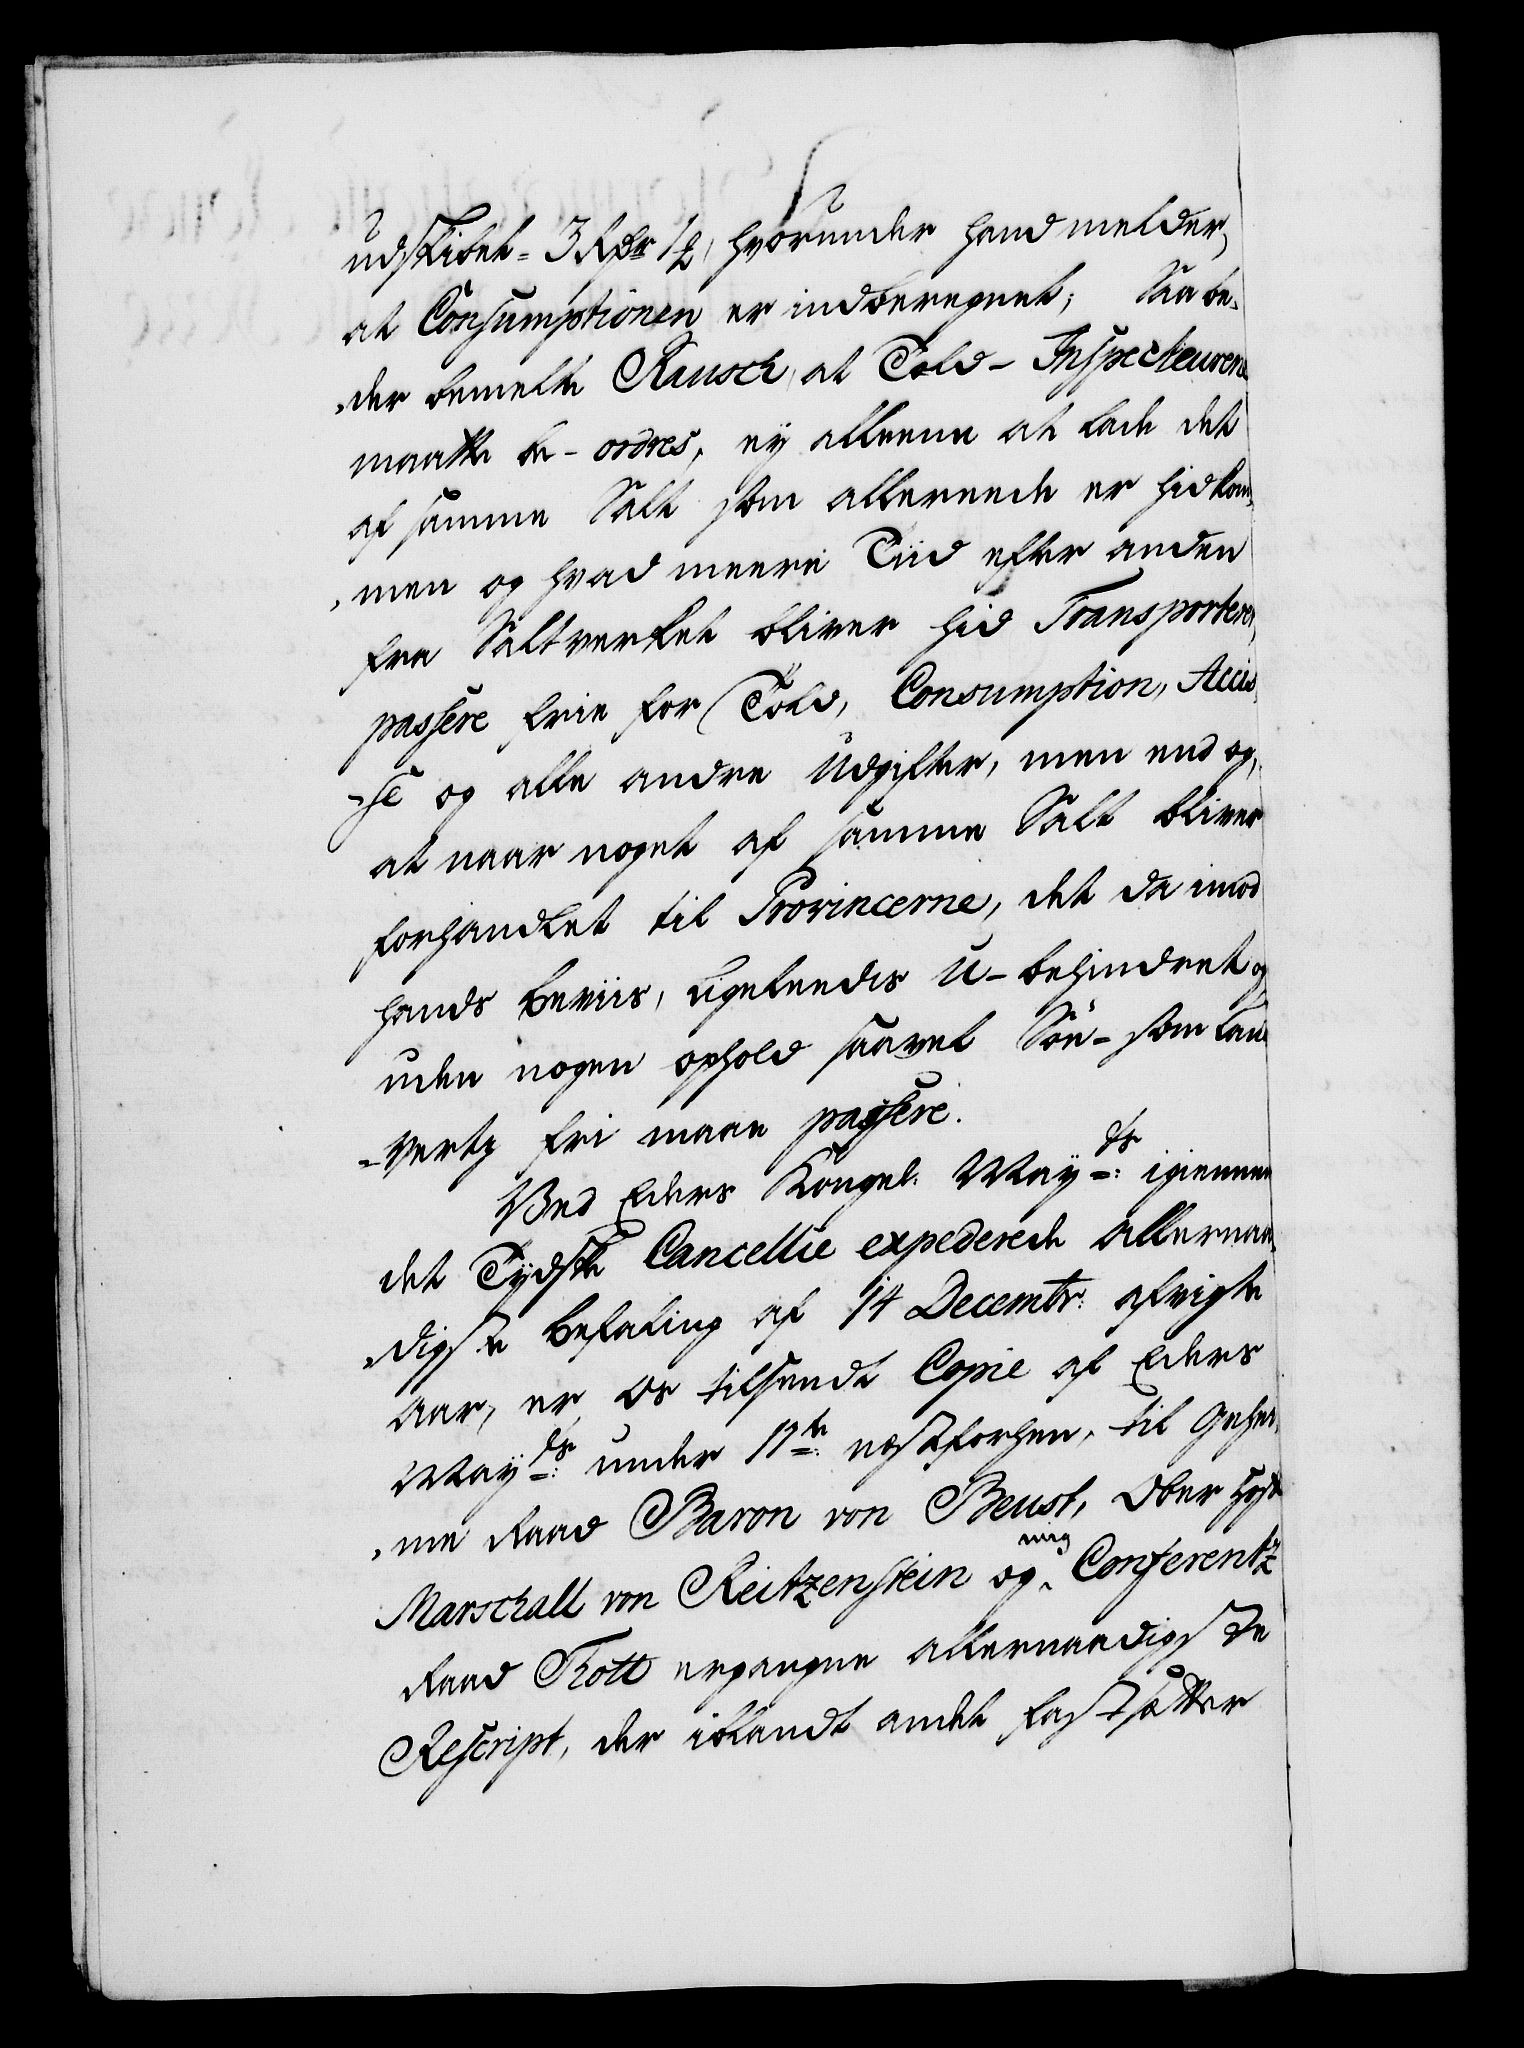 udskibet = 3 Rdr 1/2, hvorunder hand melder,
at Consumptionen er indberegnet; Saa be„
„der bemelte Rausch, at Told- Inspecteuren
maatte be- ordres, ey alleene at lade det
af samme Salt som allereede er hidkom„
„men og hvad meere Tiid efter anden
fra Saltverket bliver hid Transporteret,
passere frie for Told, Consumption, Accis„
„se og alle andre Udgifter, men end og,
at naar noget af samme Salt bliver
forhandlet til Provincerne, det da imod
hands beviis, ligeleedes U- behindret og
uden nogen ophold saavel Söe- som land
-verts fri maae passere.
Ved Eders Kongel: May ds: igiennem
det Tydske Cancellie expederede allernaa„
„digste befaling af 14 Decembr: afvigte
aar, er os tilsendt Copie af Eders
May ds: under 11te: næstforhen, til Gehei„
„me Raad Baron von Beust, Ober Hof
Marschall von Reitzenstein og mig Conferentz
Raad Thott ergangne allernaadigste
Rescript, der iblandt andet fastsætter